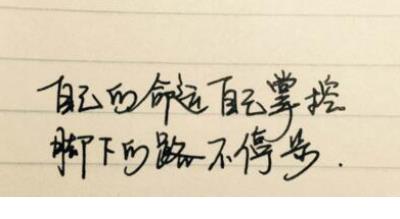 自己的命运自己掌控
脚下的路不停步.